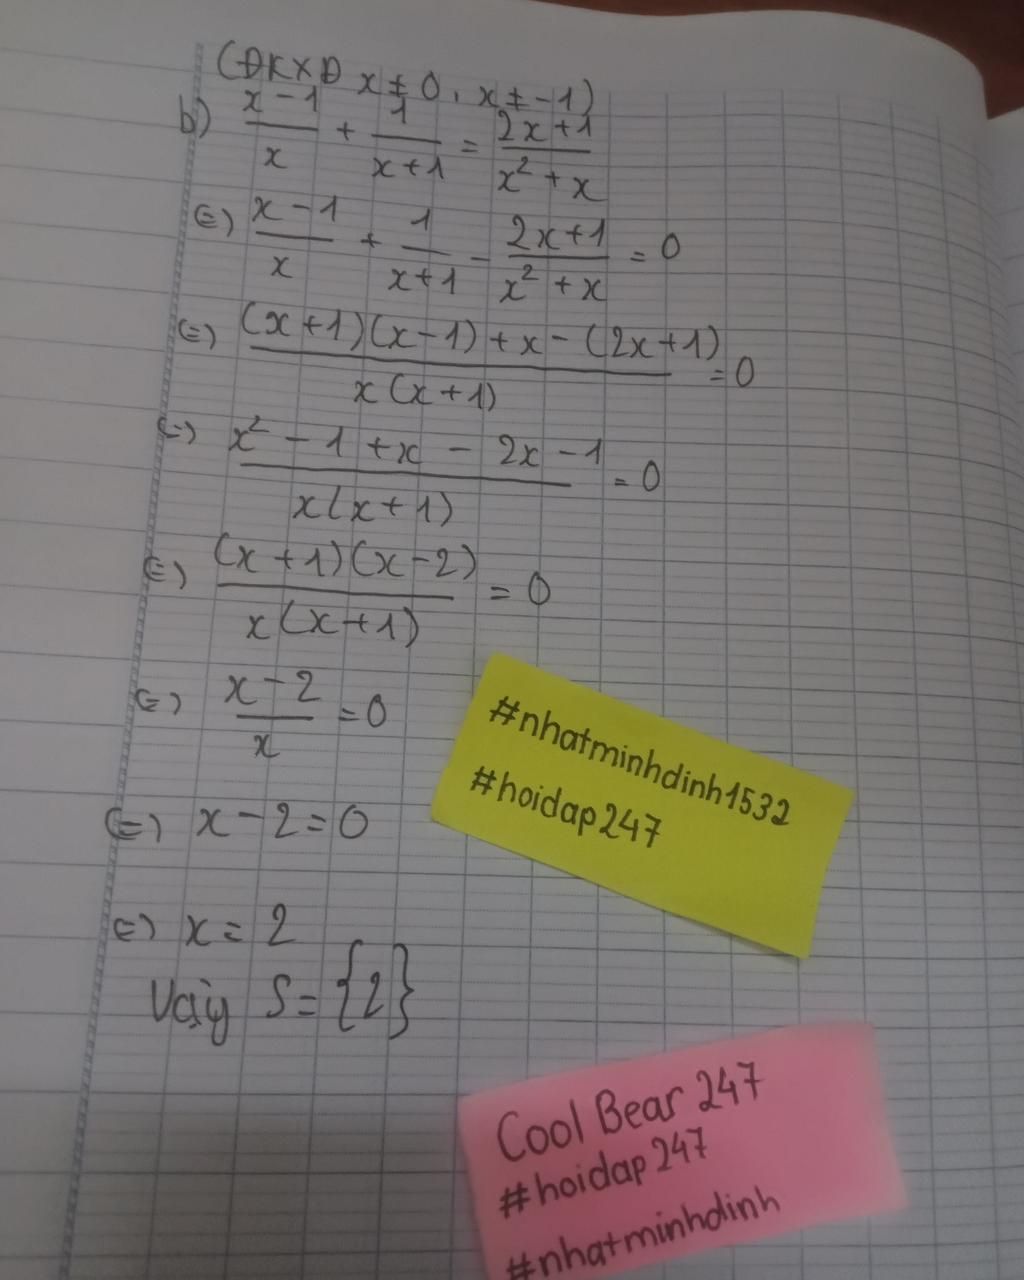 (ĐKXĐ x ≠ 0, x ≠ -1)
b) (x - 1)/x + 1/(x+1) = (2x+1)/(x² + x)
(=) (x - 1)/x + 1/(x+1) - (2x+1)/(x² + x) = 0
(=) ((x+1)(x-1) + x - (2x+1))/(x(x+1)) = 0
(=) (x² - 1 + x - 2x - 1)/(x(x+1)) = 0
(=) ((x+1)(x-2))/(x(x+1)) = 0
(=) (x - 2)/x = 0
(=) x - 2 = 0
(=) x = 2
Vậy S = {2}
#nhatminhdinh1532
#hoidap247
Cool Bear 247
#hoidap247
#nhatminhdinh